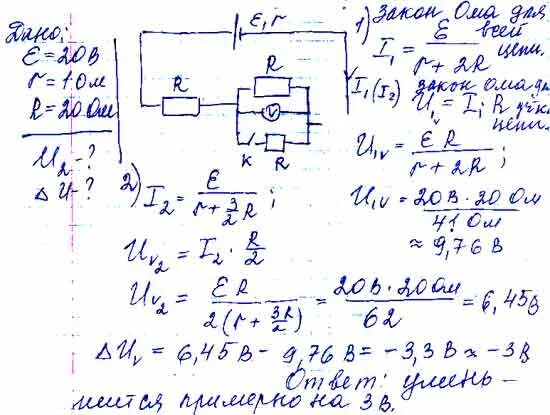 Дано:
ℰ = 20 В
r = 1 Ом
R = 20 Ом
U₂ - ?
ΔU - ?
ℰ, r
R
R
V
K
R
I₁ (I₂)
1) Закон Ома для
всей
I₁ = ℰ / (r + 2R) цепи.
Закон Ома для
U₁ᵥ = I₁ R уч-ка
цепи.
U₁ᵥ = ℰR / (r + 2R) ;
U₁ᵥ = 20В · 20 Ом / 41 Ом
≈ 9,76 В
2) I₂ = ℰ / (r + 3/2 R) ;
Uᵥ₂ = I₂ · R/2
Uᵥ₂ = ℰR / 2(r + 3R/2) = 20В · 20Ом / 62 = 6,45В
ΔUᵥ = 6,45В - 9,76 В = -3,3В ≈ -3В
Ответ: умень-
шится примерно на 3В.